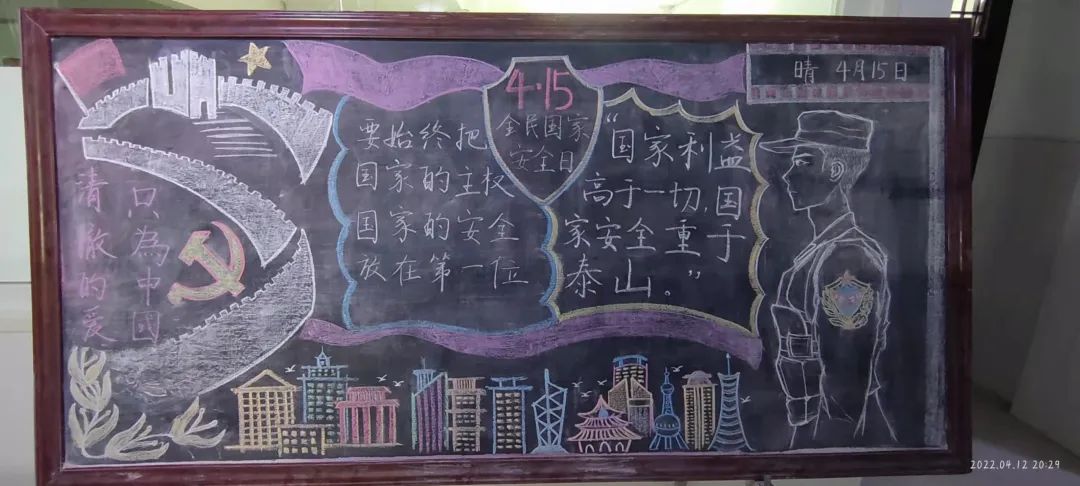 清澈的爱
只為中國
4·15
全民国家
安全日
要始终把
国家的主权
国家的安全
放在第一位
“国家利益
高于一切,国
家安全重于
泰山。”
晴 4月15日
2022.04.12 20:29